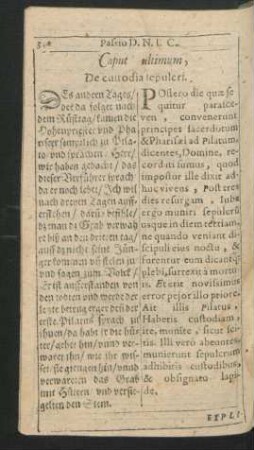 Passio D. N. I. C.
Caput ultimum,
De custodia sepulcri.
DEs andern Tages/
der da folget nach
dem Rüsttag/ kamen die
Hohenpriester und Pha-
riseer sämptlich zu Pila-
to/ und sprachen: Herr/
wir haben gedacht/ das
dieser Verführer sprach/
da er noch lebet/ Ich wil
nach dreyen Tagen auff-
erstehen/
man das Grab verwah-
re bis an den dritten tag/
auff dz nicht seine Jün-
ger kommen un stelen jn
und sagen zum Volck/
Erist aufferstanden von
den todten und werde der
letzte betrug erger deñ der
erste. Pilatus sprach zu
ihnen/ da habt jr die hüt-
ter/ gehet hin/ vnnd ver-
waret ihn/ wie ihr wis-
set/ sie giengen hin/ vnnd
verwareten das Grab
mit Hütern/ und versie-
gelten den Stein.
POstero die quæ se-
quitur parasce-
ven, convenerunt
principes sacerdotum
& Pharisæi ad Pilatum,
dicentes, Domine, re-
cordati sumus, quod
impostor ille dixit ad-
huc vivens, Post tres
dies resurgam, Iube
ergo muniri sepulcrũ
usque in diem tertiam,
ne quando veniant di-
scipuli eius noctu, &
furentur eum dicantq́;
plebi, surrexit à mortu-
is. Et erit novissimus
error pejor illo priore.
Ait illis Pilatus,
Habetis custodiam,
ite, munite, sicut sci-
tis. Illi verò abeuntes
munierunt sepulcrum
adhibitis custodibus,
& obsignato lapi-
de.
EXPLI-